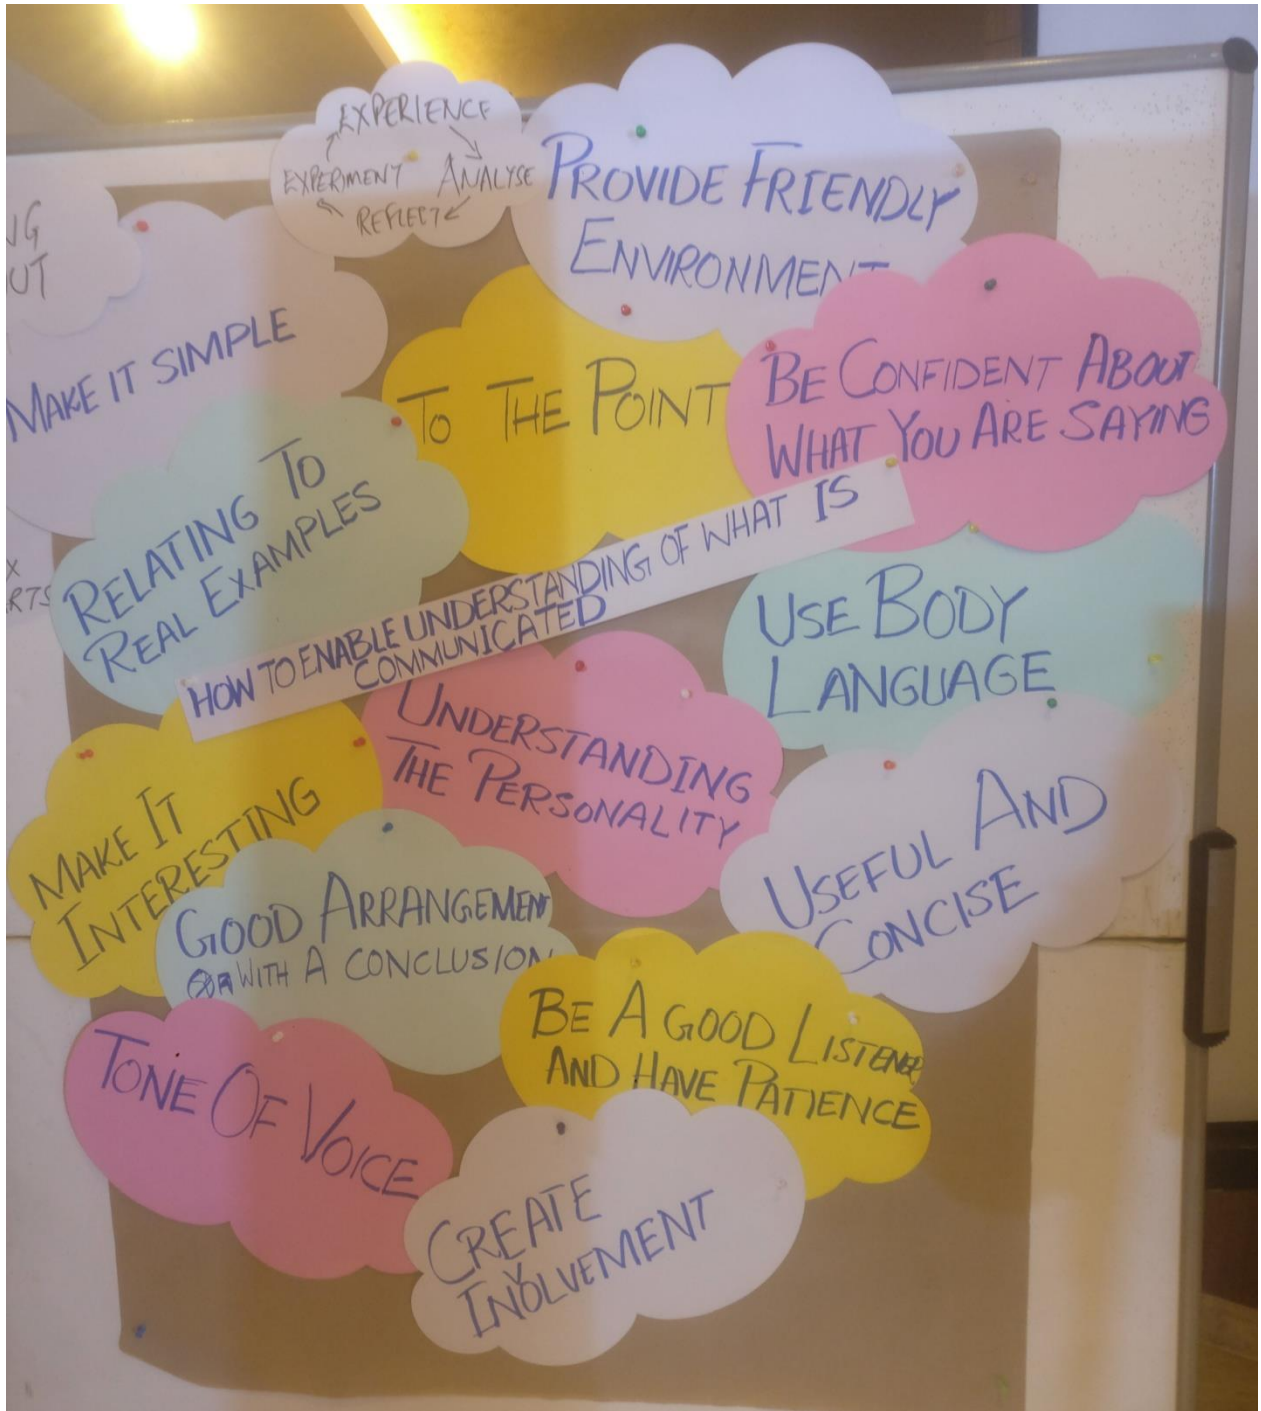 EXPERIENCE
ANALYSE
REFLECT
EXPERIMENT
PROVIDE FRIENDLY
ENVIRONMENT
UT
MAKE IT SIMPLE
TO THE POINT
BE CONFIDENT ABOUT
WHAT YOU ARE SAYING
RELATING TO
REAL EXAMPLES
X
RTS
HOW TO ENABLE UNDERSTANDING OF WHAT IS
COMMUNICATED
USE BODY
LANGUAGE
UNDERSTANDING
THE PERSONALITY
MAKE IT
INTERESTING
USEFUL AND
CONCISE
GOOD ARRANGEMENT
WITH A CONCLUSION
BE A GOOD LISTENER
AND HAVE PATIENCE
TONE OF VOICE
CREATE
INVOLVEMENT